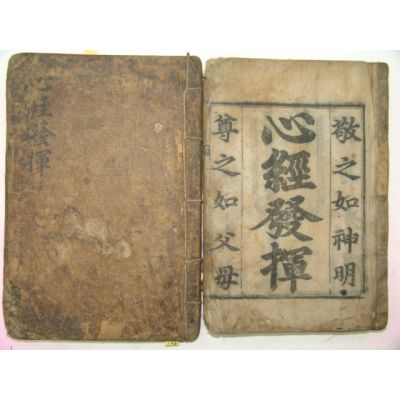 心經發揮
敬之如神明
心經發揮
尊之如父母